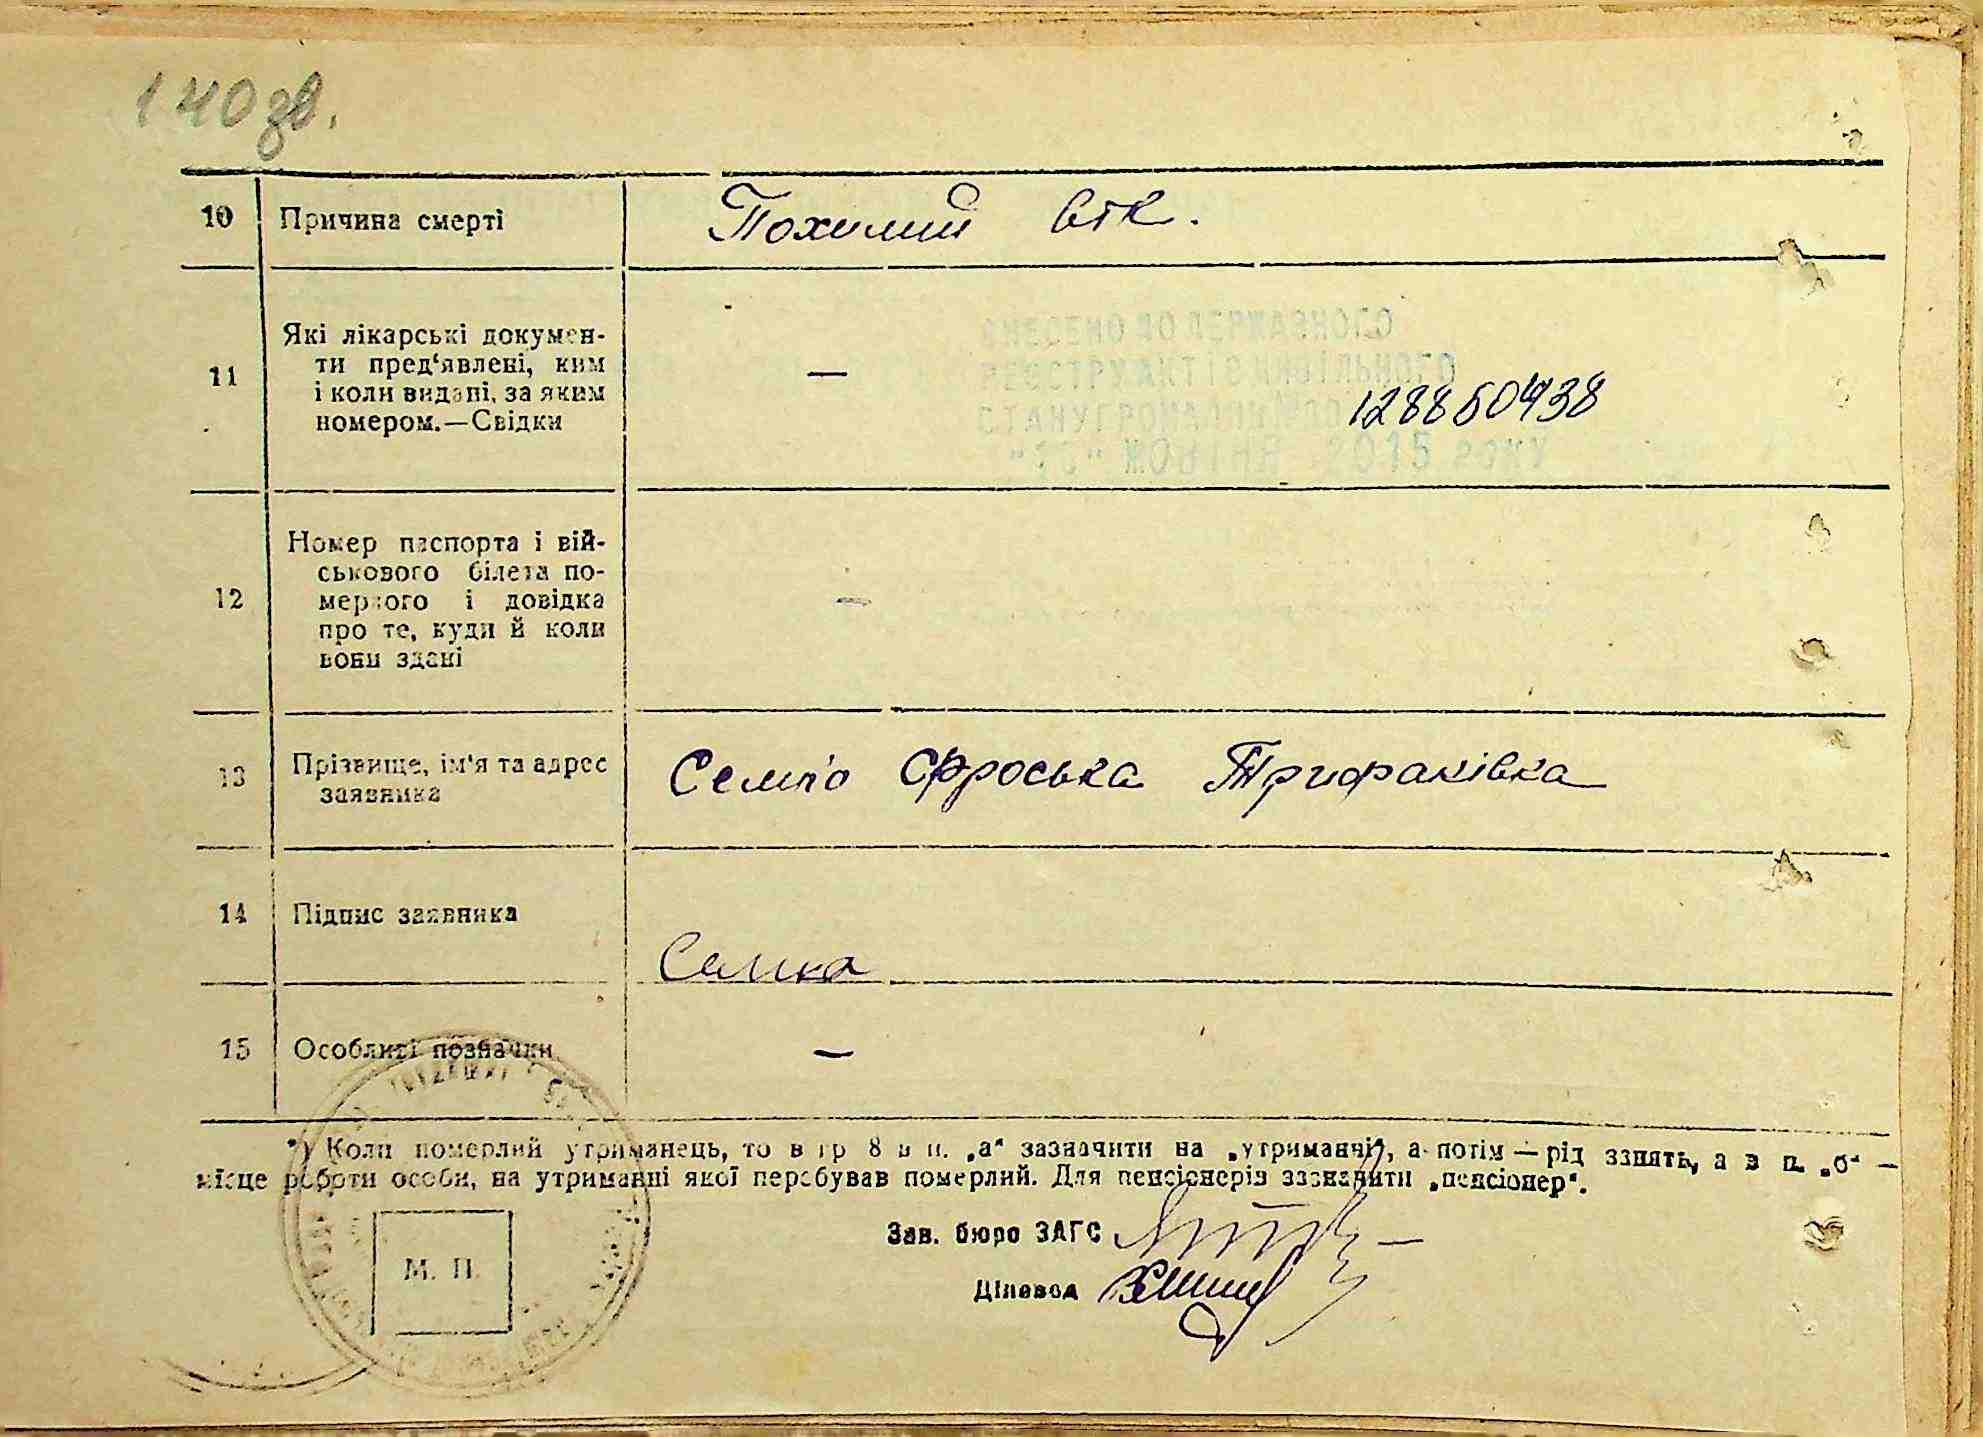 140 зв.
10 Причина смерті Похилий вік.
11 Які лікарські докумен-
ти пред'явлені, ким
і коли видані, за яким
номером.—Свідки
—
ВНЕСЕНО ДО ДЕРЖАВНОГО
РЕЄСТРУ АКТІВ ЦИВІЛЬНОГО
СТАНУ ГРОМАДЯН
ЖОВТНЯ 2015 РОКУ
12 Номер паспорта і вій-
ськового білета по-
мерлого і довідка
про те, куди й коли
вони здані
—
13 Прізвище, ім'я та адрес
заявника
Фроська Трифаківка
14 Підпис заявника
15 Особливі позначки —
*) Коли померлий утриманець, то в гр 8 в п. „а“ зазначити на „утриманні“, а потім — рід занять, а в п. „б“ —
місце роботи особи, на утриманні якої перебував померлий. Для пенсіонерів зазначити „пенсіонер“.
Зав. бюро ЗАГС
Діловод
М. П.